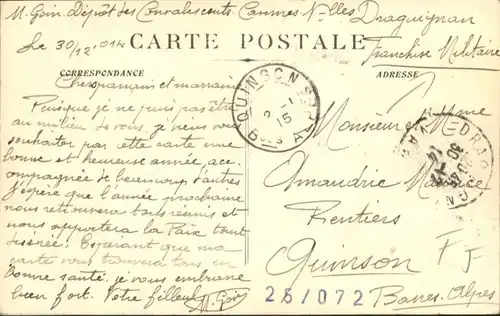 M. Goin. Dépôt des Convalescents. Cannes Nelles Draguignan
Le 30/12.014
CARTE POSTALE
Franchise Militaire
CORRESPONDANCE
ADRESSE
Chers parrain et marraine
Puisque je ne puis pas être
au milieu de vous je viens vous
souhaiter par cette carte une
bonne et heureuse année, acc
ompagnée de beaucoup d'autres
J'espère que l'année prochaine
nous retrouvera tous réunis et
nous apportera la Paix tant
désirée. Espérant que ma
carte vous trouvera tous en
bonne santé. je vous embrasse
bien fort. Votre filleul M. Goin
QUINSON
2 - 1
15
Bses ALPES
Monsieur et Mme
Amaudric Maurice
Rentiers
Quinson
Basses-Alpes
F F
DRAG
30
25/072